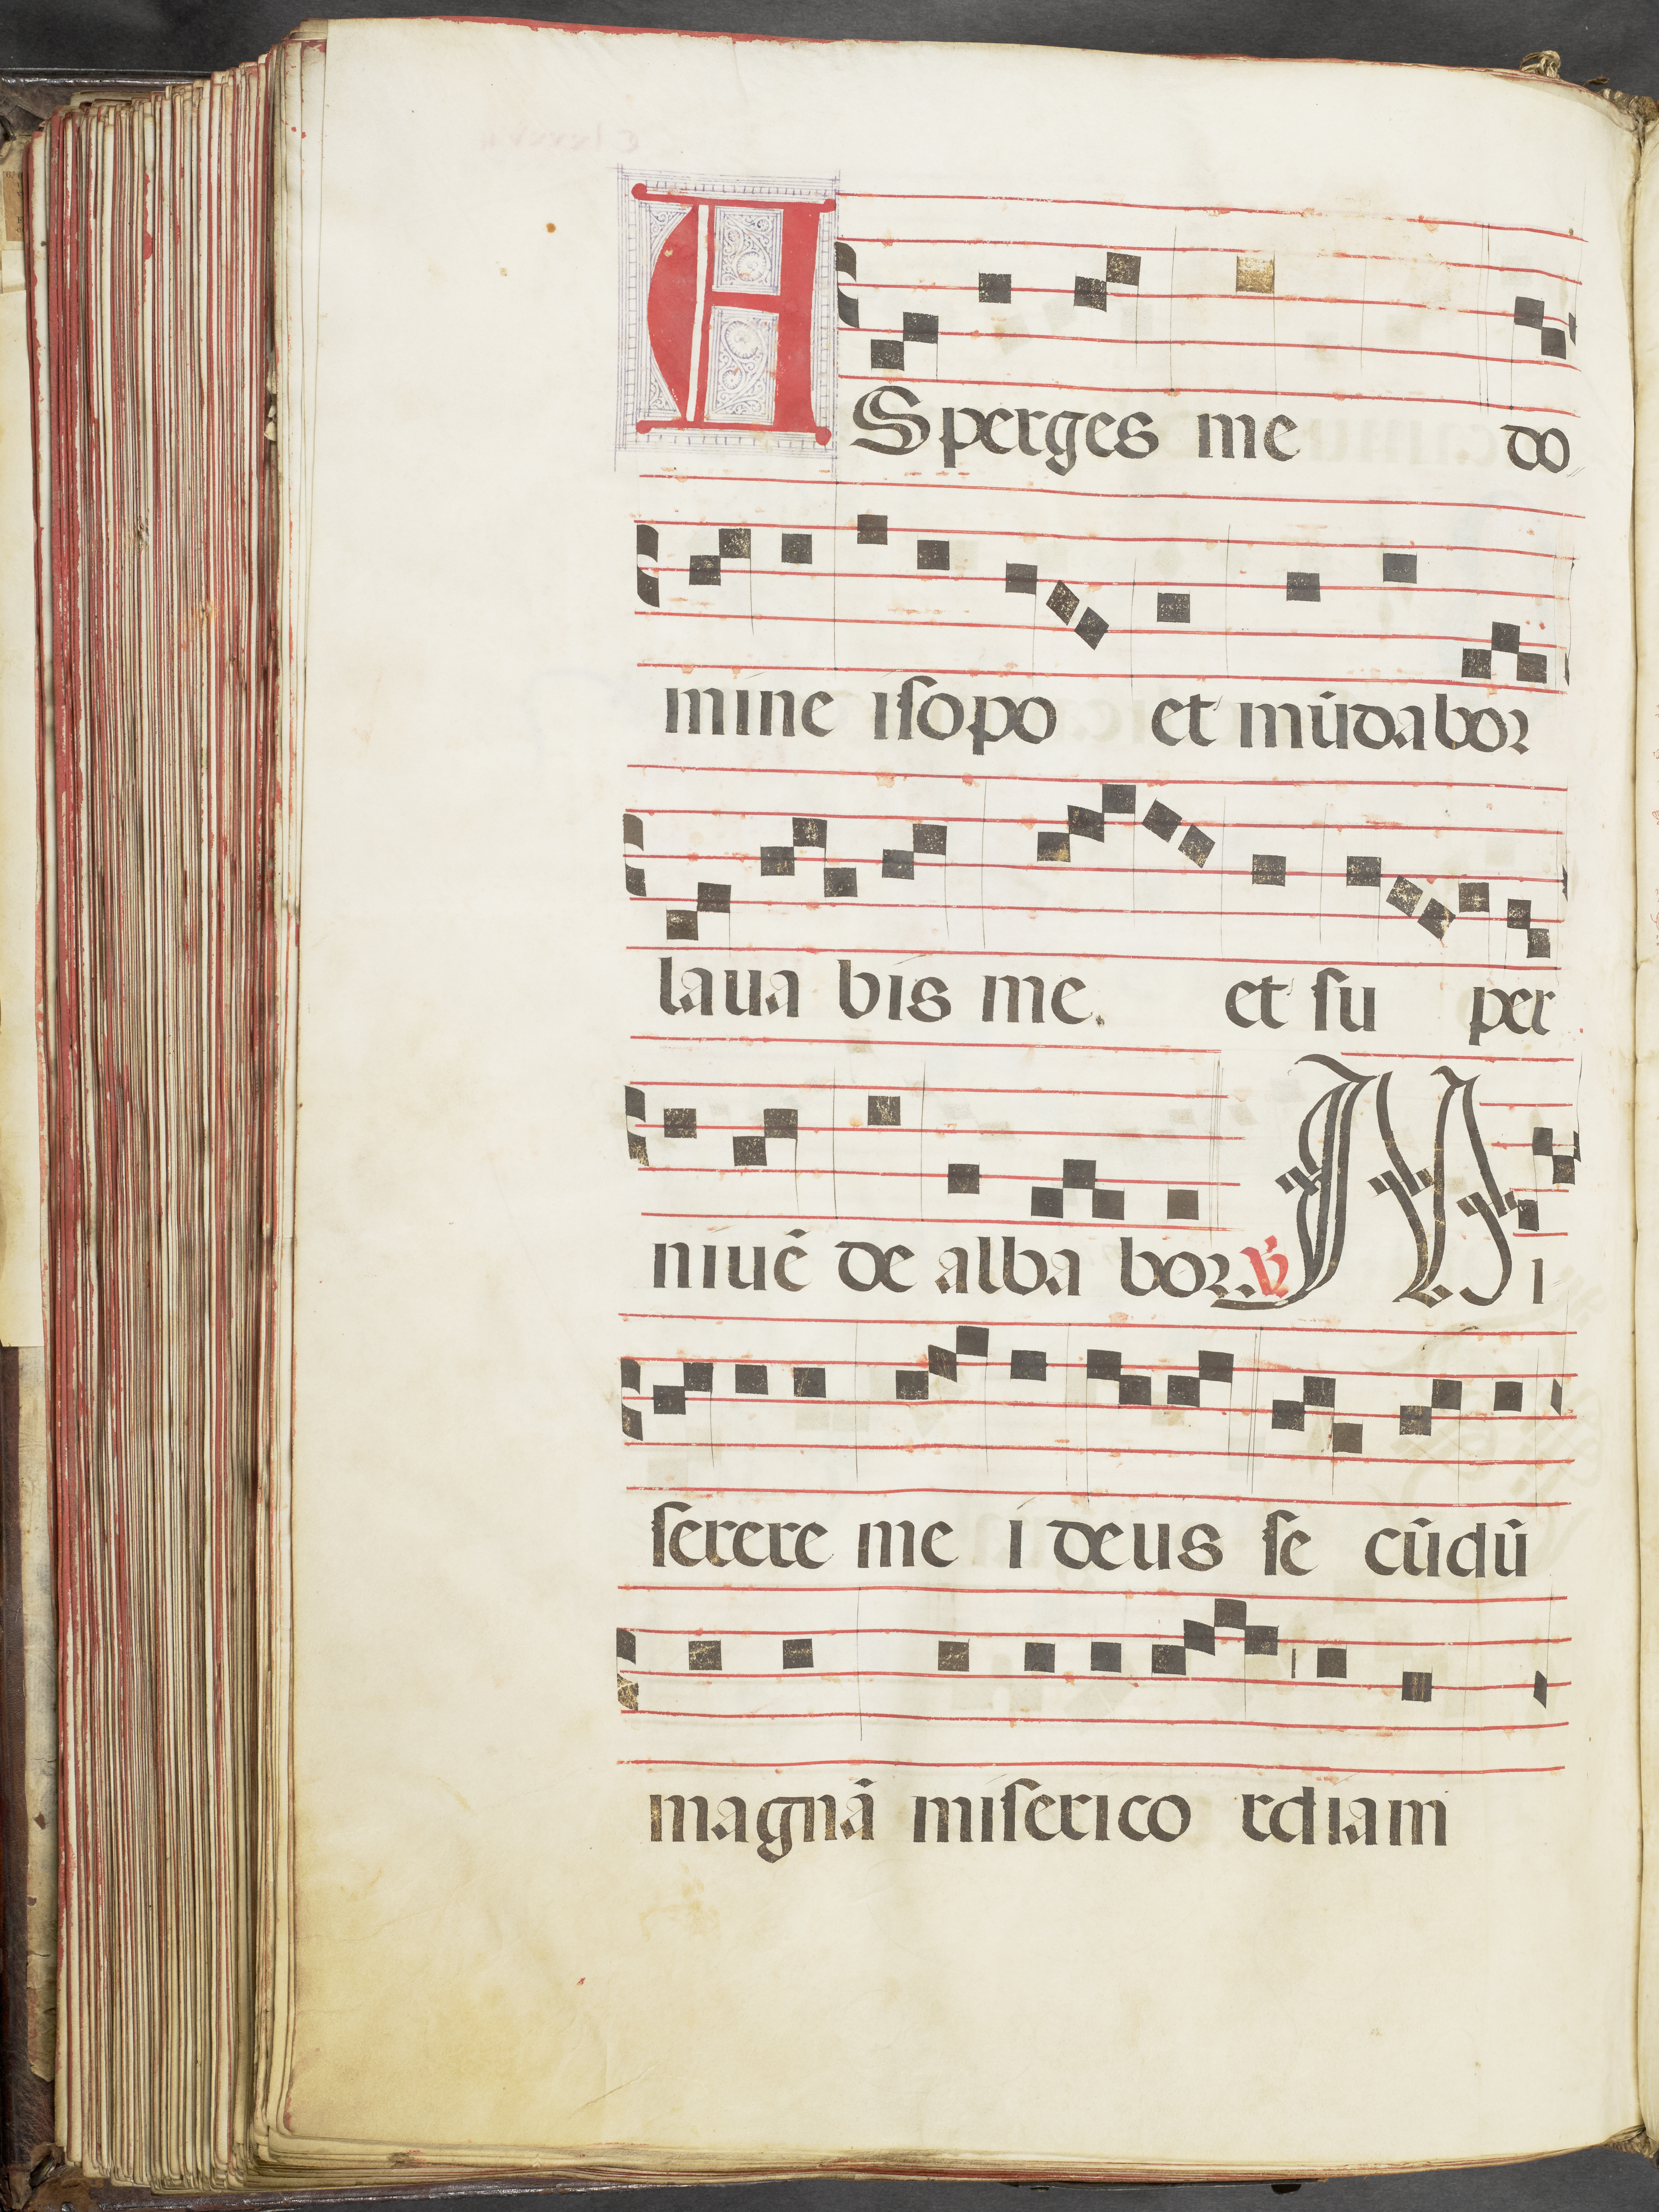 ASperges me do
mine iſopo et mūdabor
laua bis me. et ſu per
niuē de alba bor. ℣ Mi
ſerere me i deus ſe cūdū
magnā miſerico rdiam